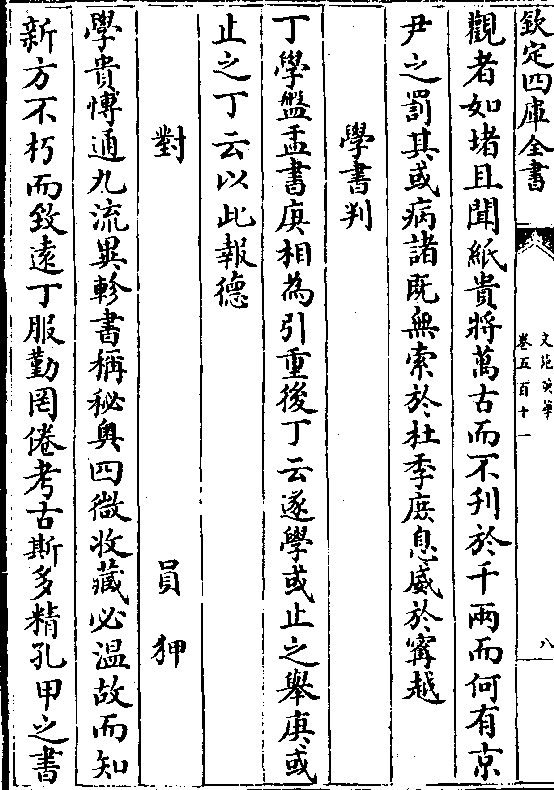 欽定四庫全書
文苑英華
卷五百十一
八
觀者如堵且聞紙貴將萬古而不刋於千兩而何有京
尹之罰其或病諸既無索於杜季庶息威於甯越
學書判
丁學盤盂書庚相為引重後丁云遂學或止之舉庚或
止之丁云以此報德
對
員押
學貴博通九流異軫書稱秘奥四徵收藏必温故而知
新方不朽而致遠丁服勤罔倦考古斯多精孔甲之書